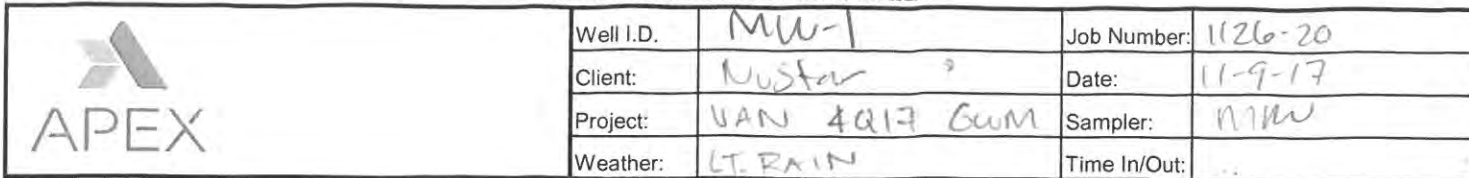 APEX
Well I.D. MW-1 Job Number: 1126-20
Client: NuStar Date: 11-9-17
Project: VAN 4Q17 GWM Sampler:
Weather: LT. RAIN Time In/Out: